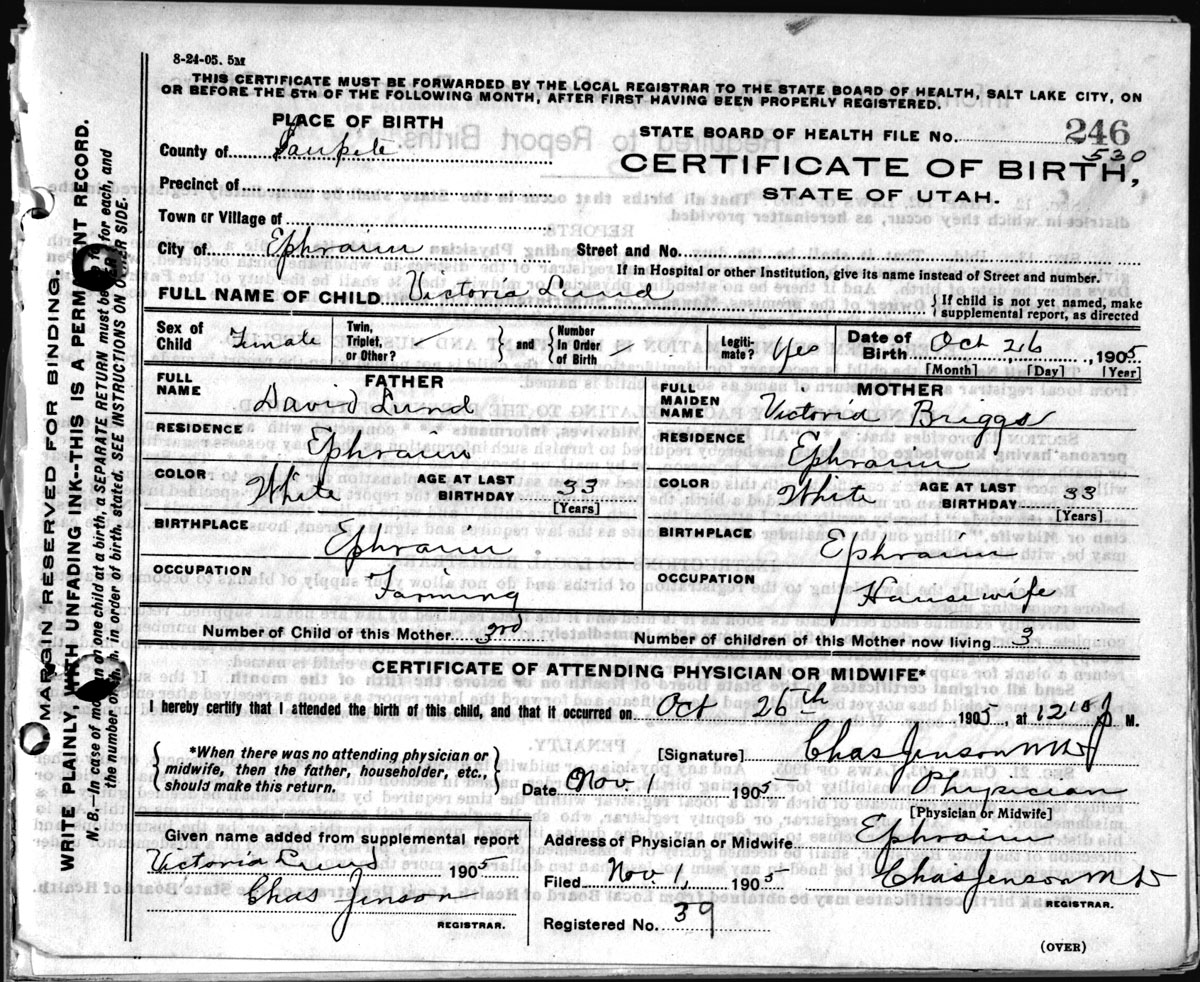 8-24-05. 5M
THIS CERTIFICATE MUST BE FORWARDED BY THE LOCAL REGISTRAR TO THE STATE BOARD OF HEALTH, SALT LAKE CITY, ON
OR BEFORE THE 5TH OF THE FOLLOWING MONTH, AFTER FIRST HAVING BEEN PROPERLY REGISTERED.
PLACE OF BIRTH
STATE BOARD OF HEALTH FILE No. 246
530
County of Sanpete
CERTIFICATE OF BIRTH,
Precinct of
STATE OF UTAH.
Town or Village of
City of Ephraim Street and No.
If in Hospital or other Institution, give its name instead of Street and number.
FULL NAME OF CHILD Victoria Lund { If child is not yet named, make
supplemental report, as directed
Sex of Child Female Twin, Triplet, or Other? } and { Number In Order of Birth Legiti-mate? Yes Date of Birth Oct 26, 1905
[Month] [Day] [Year]
FATHER
FULL NAME David Lund
RESIDENCE Ephraim
COLOR White AGE AT LAST BIRTHDAY 33
[Years]
BIRTHPLACE Ephraim
OCCUPATION Farming
MOTHER
FULL MAIDEN NAME Victoria Briggs
RESIDENCE Ephraim
COLOR White AGE AT LAST BIRTHDAY 33
[Years]
BIRTHPLACE Ephraim
OCCUPATION Housewife
Number of Child of this Mother 3rd Number of children of this Mother now living 3
CERTIFICATE OF ATTENDING PHYSICIAN OR MIDWIFE*
I hereby certify that I attended the birth of this child, and that it occurred on Oct 26th 1905, at 12 M.
{ *When there was no attending physician or
midwife, then the father, householder, etc.,
should make this return. }
[Signature] Chas Jenson MD
Date Nov 1 1905 Physician
[Physician or Midwife]
Given name added from supplemental report
Victoria Lund 1905
Chas Jenson
REGISTRAR.
Address of Physician or Midwife Ephraim
Filed Nov 1, 1905 Chas Jenson MD
REGISTRAR.
Registered No. 39
(OVER)
MARGIN RESERVED FOR BINDING.
WRITE PLAINLY, WITH UNFADING INK--THIS IS A PERMANENT RECORD.
N. B.—In case of more than one child at a birth, a SEPARATE RETURN must be made for each, and
the number of each, in order of birth, stated. SEE INSTRUCTIONS ON OTHER SIDE.